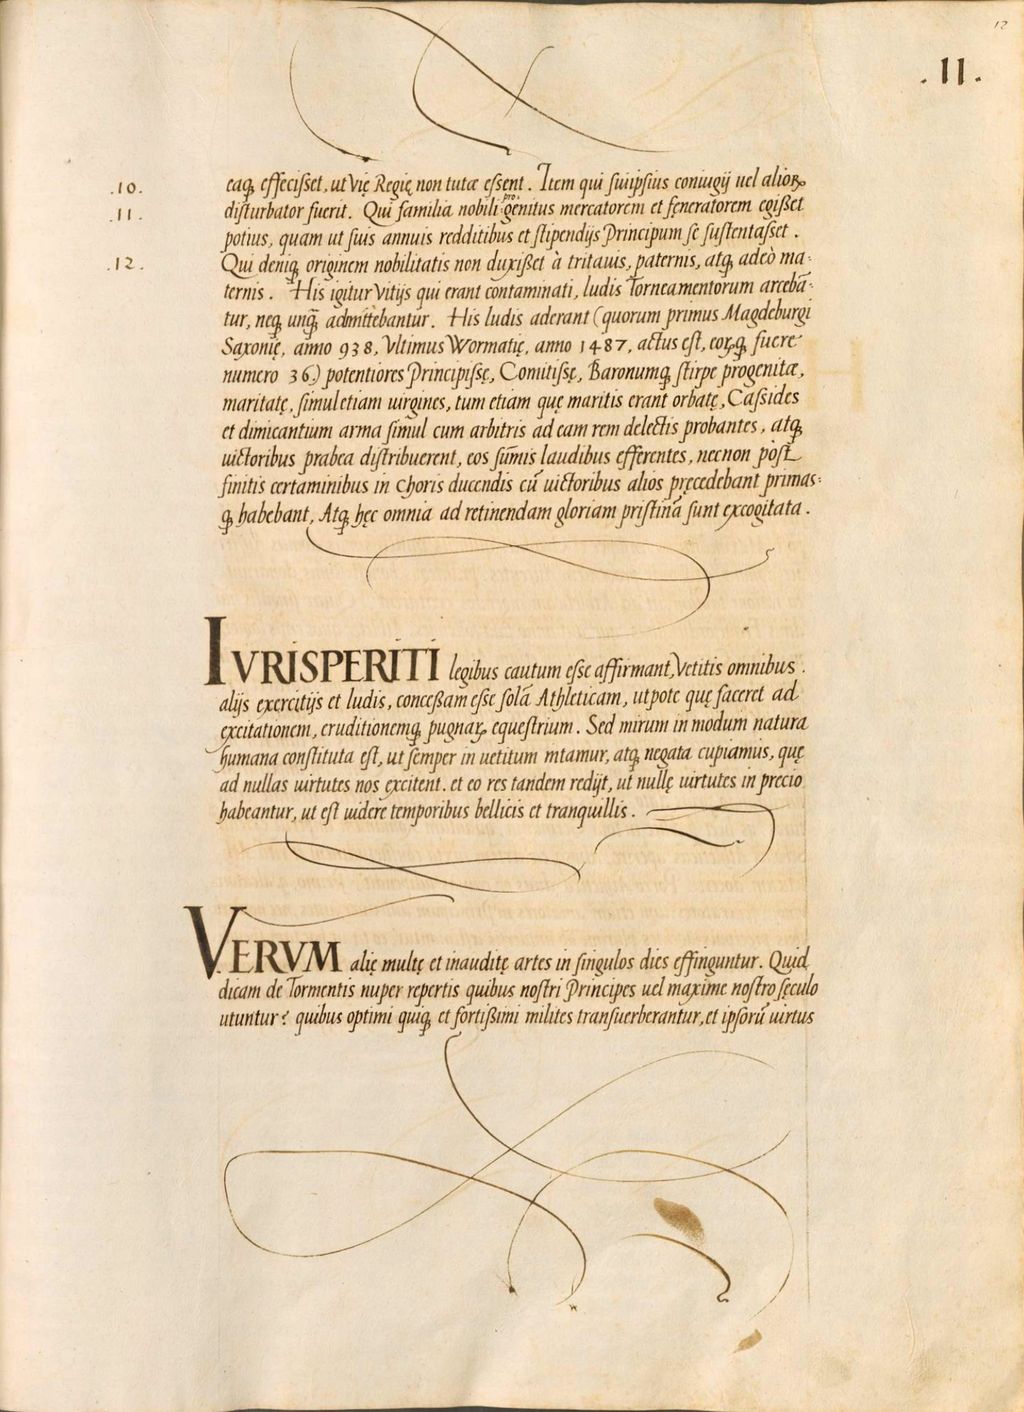 12
.11.
.10. eaq; effecisset, ut Vię Regię non tutæ essent. Item qui suiipsius coniugij uel alioꝝ
.11. disturbator fuerit. Qui familia nobili pro:genitus mercatorem et fęneratorem egisset
potius, quam ut suis annuis redditibus et stipendijs Principum se sustentasset.
.12. Qui deniq; originem nobilitatis non duxisset à tritauis, paternis, atq; adeò ma:
ternis. His igitur Vitijs qui erant contaminati, ludis Torneamentorum arcebā:
tur, neq; unq̃; admittebantur. His ludis aderant (quorum primus Magdeburgi
Saxonię, anno 938, Vltimus Wormatię, anno 1487, actus est, eoꝝq; fuere
numero 36) potentiores Principissę, Comitissę, Baronumq; stirpe progenitæ,
maritatę, simul etiam uirgines, tum etiam quę maritis erant orbatę, Cassides
et dimicantium arma simul cum arbitris ad eam rem delectis probantes, atq;
uictoribus prabea distribuerent, eos sūmis laudibus efferentes, necnon post
finitis certaminibus in choris ducendis cū uictoribus alios pręcedebant primas:
q; habebant, Atq; hęc omnia ad retinendam gloriam pristinā sunt excogitata.
IVRISPERITI legibus cautum esse affirmant, Vetitis omnibus.
alijs exercitijs et ludis, concessam esse solā Athleticam, utpote quę faceret ad
excitationem, eruditionemq; pugnaꝝ equestrium. Sed mirum in modum natura
humana constituta est, ut semper in uetitum nitamur, atq; negata cupiamus, quę
ad nullas uirtutes nos excitent. et eo res tandem redijt, ut nullę uirtutes in precio
habeantur, ut est uidere temporibus bellicis et tranquillis.
VERVM alię multę et inauditę artes in singulos dies effinguntur. Quid
dicam de Tormentis nuper repertis quibus nostri Principes uel maxime nostro sęculo
utuntur? quibus optimi quiq; et fortissimi milites transuerberantur, et ipsorū uirtus